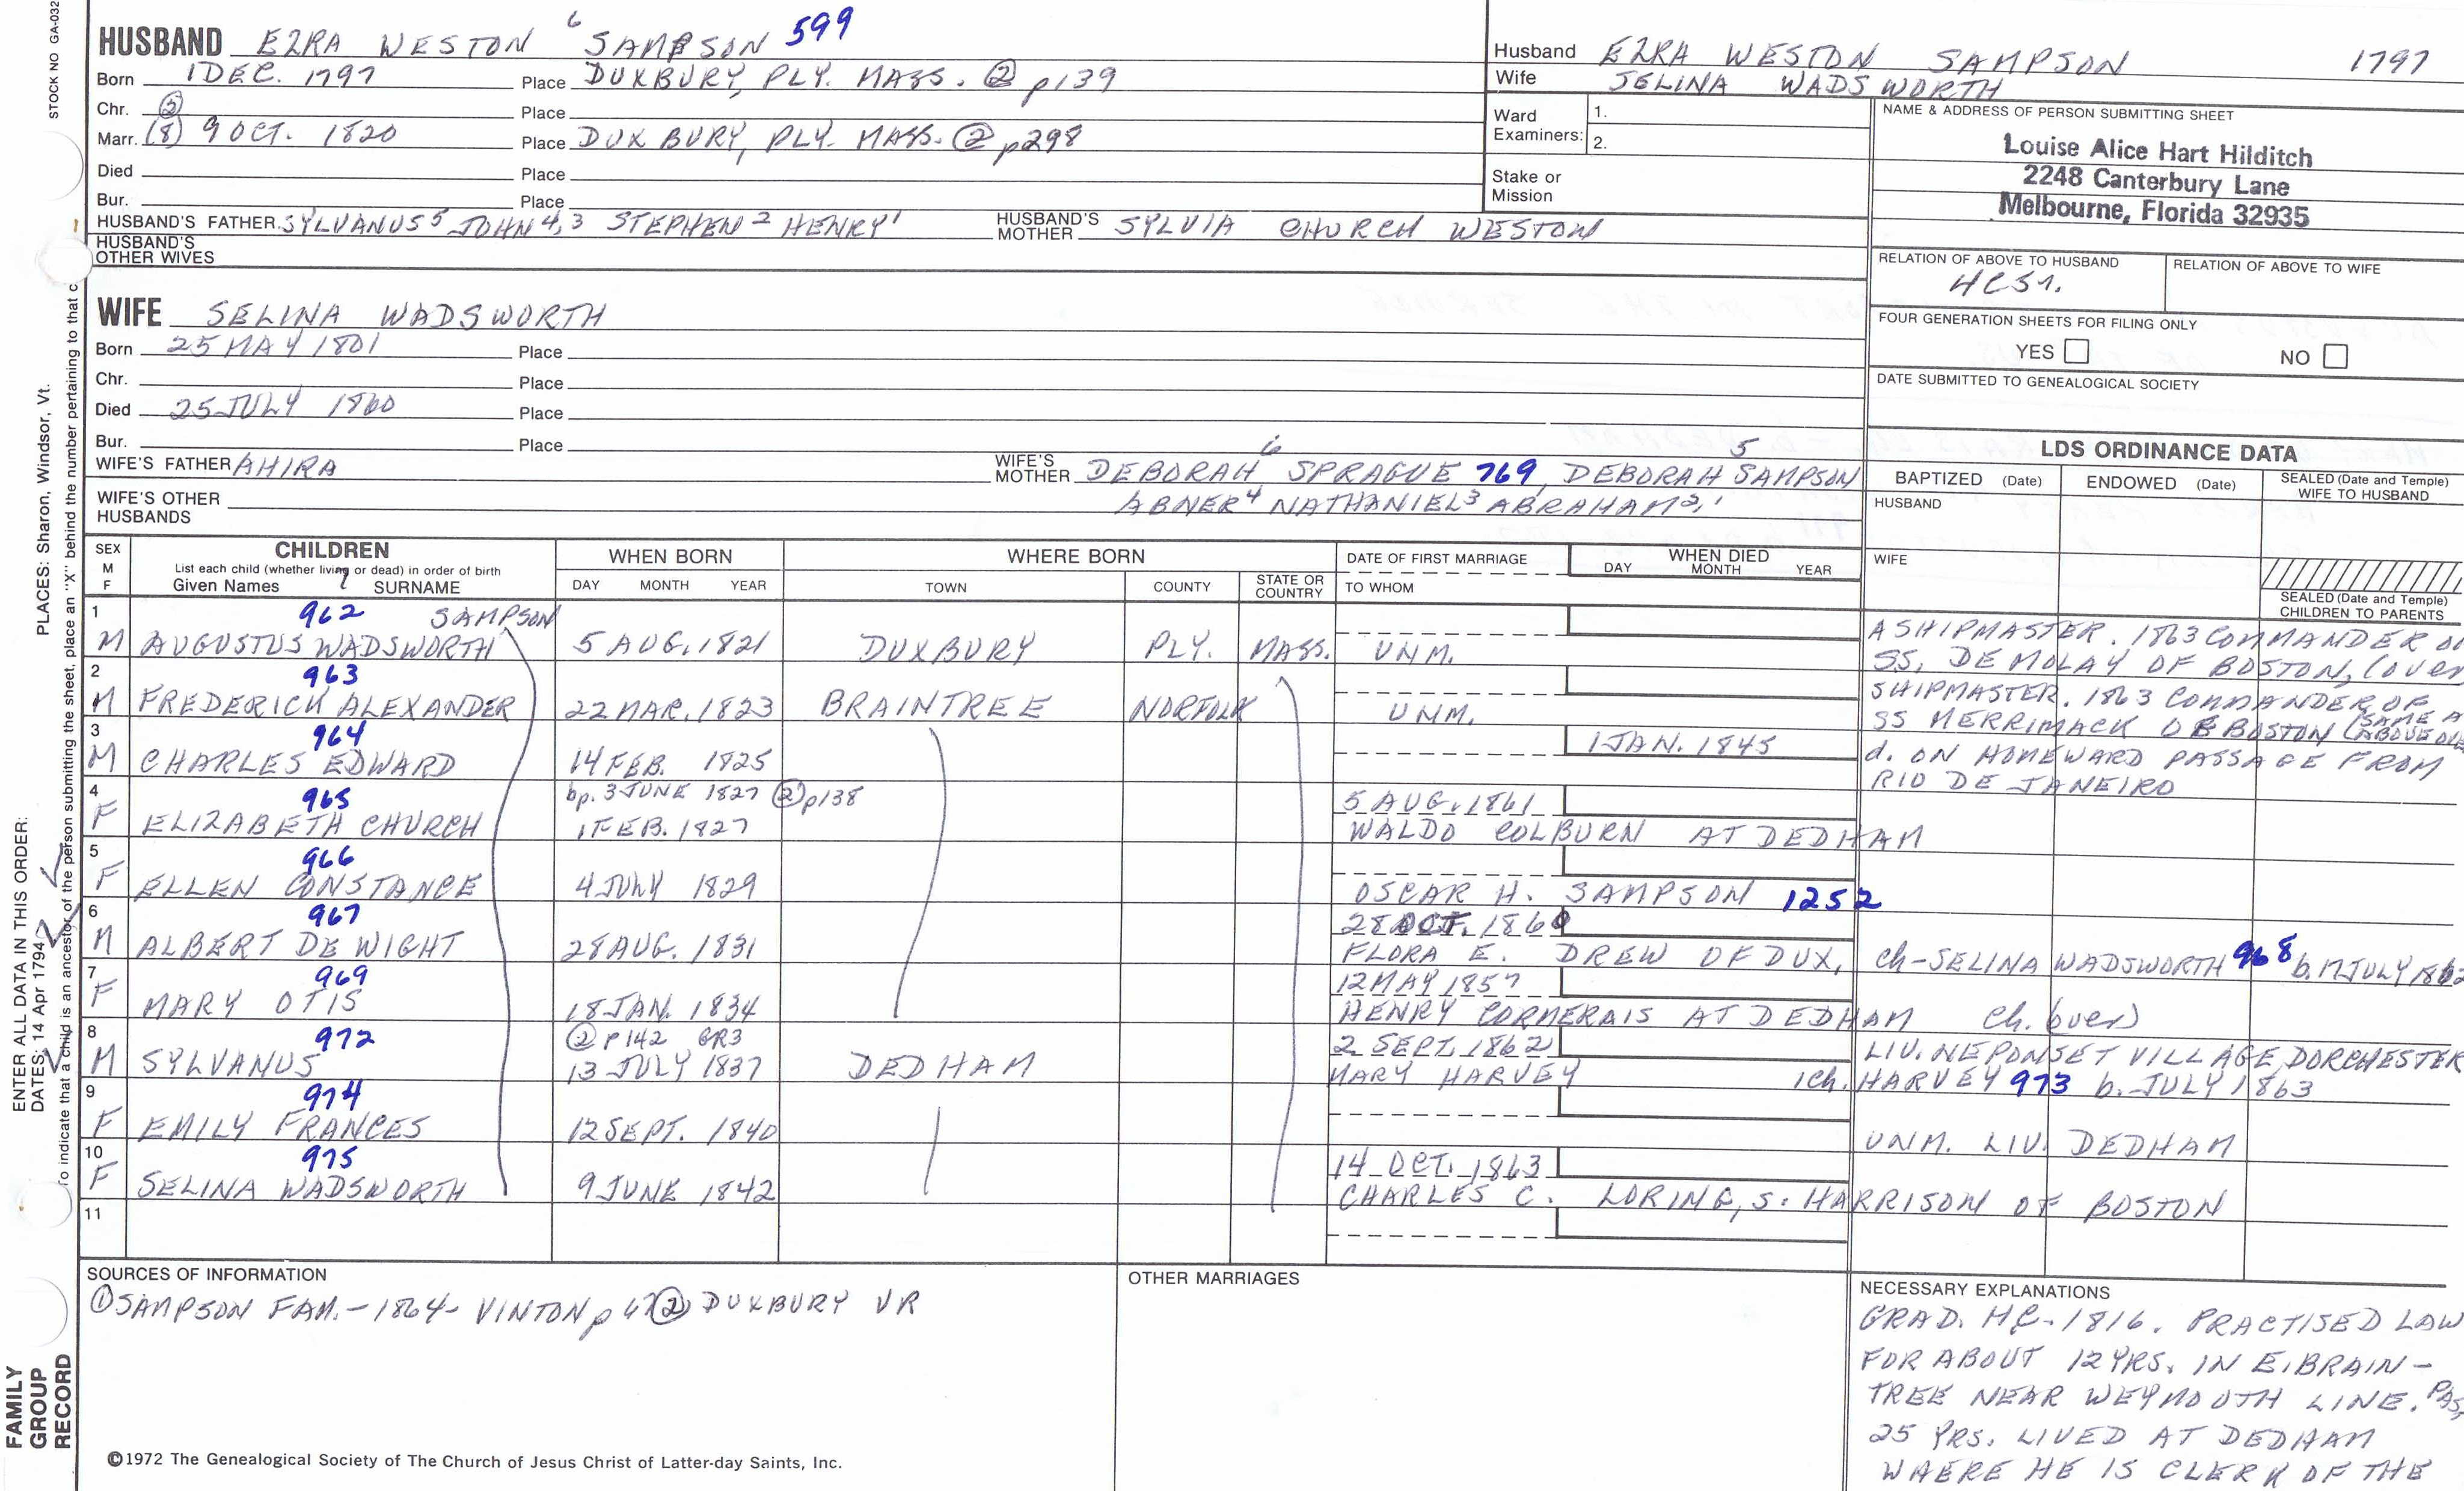 STOCK NO GA-032
HUSBAND EZRA WESTON 6 SAMPSON 599
Born 1 DEC. 1797 Place DUXBURY, PLY. MASS. ② p139
Chr. ⑤ Place
Marr. (8) 9 OCT. 1820 Place DUXBURY, PLY. MASS. ② p298
Died Place
Bur. Place
HUSBAND'S FATHER SYLVANUS5 JOHN4,3 STEPHEN2 HENRY1 HUSBAND'S MOTHER SYLVIA CHURCH WESTON
HUSBAND'S OTHER WIVES
Husband EZRA WESTON SAMPSON 1797
Wife SELINA WADSWORTH
Ward Examiners: 1.
2.
Stake or Mission
NAME & ADDRESS OF PERSON SUBMITTING SHEET
Louise Alice Hart Hilditch
2248 Canterbury Lane
Melbourne, Florida 32935
RELATION OF ABOVE TO HUSBAND RELATION OF ABOVE TO WIFE
FOUR GENERATION SHEETS FOR FILING ONLY
YES NO
DATE SUBMITTED TO GENEALOGICAL SOCIETY
WIFE SELINA WADSWORTH
Born 25 MAY 1801 Place
Chr. Place
Died 25 JULY 1860 Place
Bur. Place
WIFE'S FATHER AHIRA WIFE'S MOTHER DEBORAH 6 SPRAGUE 769, DEBORAH 5 SAMPSON
ABNER4 NATHANIEL3 ABRAHAM2,1
WIFE'S OTHER HUSBANDS
LDS ORDINANCE DATA
BAPTIZED (Date) ENDOWED (Date) SEALED (Date and Temple) WIFE TO HUSBAND
HUSBAND
WIFE
SEALED (Date and Temple) CHILDREN TO PARENTS
SEX M F
CHILDREN
List each child (whether living or dead) in order of birth
Given Names 7 SURNAME
WHEN BORN
DAY MONTH YEAR
WHERE BORN
TOWN COUNTY STATE OR COUNTRY
DATE OF FIRST MARRIAGE
TO WHOM
WHEN DIED
DAY MONTH YEAR
1 962 SAMPSON
M AUGUSTUS WADSWORTH 5 AUG. 1821 DUXBURY PLY. MASS. UNM.
A SHIPMASTER. 1863 COMMANDER OF
SS. DE MOLAY OF BOSTON, (over
2 963
M FREDERICK ALEXANDER 22 MAR. 1823 BRAINTREE NORFOLK UNM.
SHIPMASTER. 1863 COMMANDER OF
SS MERRIMACK OF BOSTON (SAME A
ABOVE
3 964
M CHARLES EDWARD 14 FEB. 1825 1 JAN. 1845
d. ON HOMEWARD PASSAGE FROM
RIO DE JANEIRO
4 965 bp. 3 JUNE 1827 ② p138
F ELIZABETH CHURCH 1 FEB. 1827
5 AUG. 1861
WALDO COLBURN AT DEDHAM
5 966
F ELLEN CONSTANCE 4 JULY 1829
OSCAR H. SAMPSON 1252
6 967
M ALBERT DE WIGHT 28 AUG. 1831
28 OCT. 1860
FLORA E. DREW OF DUX, ch-SELINA WADSWORTH 968 b. 17 JULY 1862
7 969
F MARY OTIS 18 JAN. 1834
12 MAY 1857
HENRY CORMERAIS AT DEDHAM ch. (over)
8 972 ② p142 GR3
M SYLVANUS 13 JULY 1837 DEDHAM
2 SEPT. 1862
MARY HARVEY
LIV. NEPONSET VILLAGE, DORCHESTER
1ch. HARVEY 973 b. JULY 1863
9 974
F EMILY FRANCES 12 SEPT. 1840
UNM. LIV. DEDHAM
10 975
F SELINA WADSWORTH 9 JUNE 1842
14 OCT. 1863
CHARLES C. LORING, s: HARRISON OF BOSTON
11
SOURCES OF INFORMATION
① SAMPSON FAM. - 1864 - VINTON p ② DUXBURY VR
OTHER MARRIAGES
NECESSARY EXPLANATIONS
GRAD. HC-1816. PRACTISED LAW
FOR ABOUT 12 YRS. IN E. BRAIN-
TREE NEAR WEYMOUTH LINE. PAS
25 YRS. LIVED AT DEDHAM
WHERE HE IS CLERK OF THE
©1972 The Genealogical Society of The Church of Jesus Christ of Latter-day Saints, Inc.
ENTER ALL DATA IN THIS ORDER:
DATES: 14 Apr 1794
PLACES: Sharon, Windsor, Vt.
To indicate that a child is an ancestor of the person submitting the sheet, place an "X" behind the number pertaining to that c
FAMILY
GROUP
RECORD